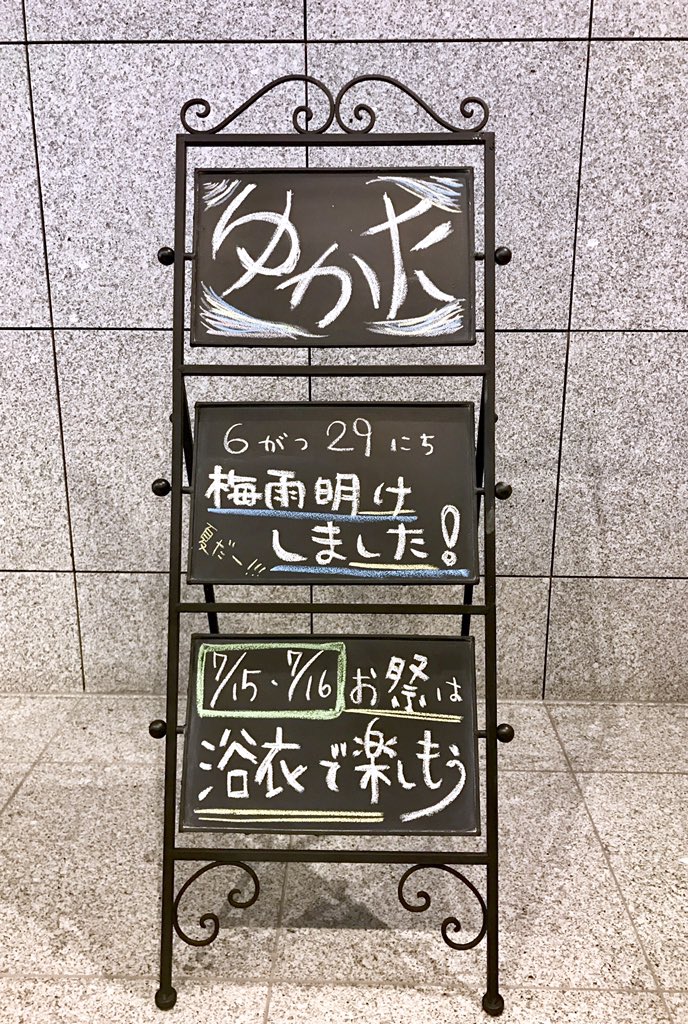 ゆかた
6がつ29にち
梅雨明け
しました!
夏だー!!!
7/15、7/16 お祭は
浴衣で楽しもう